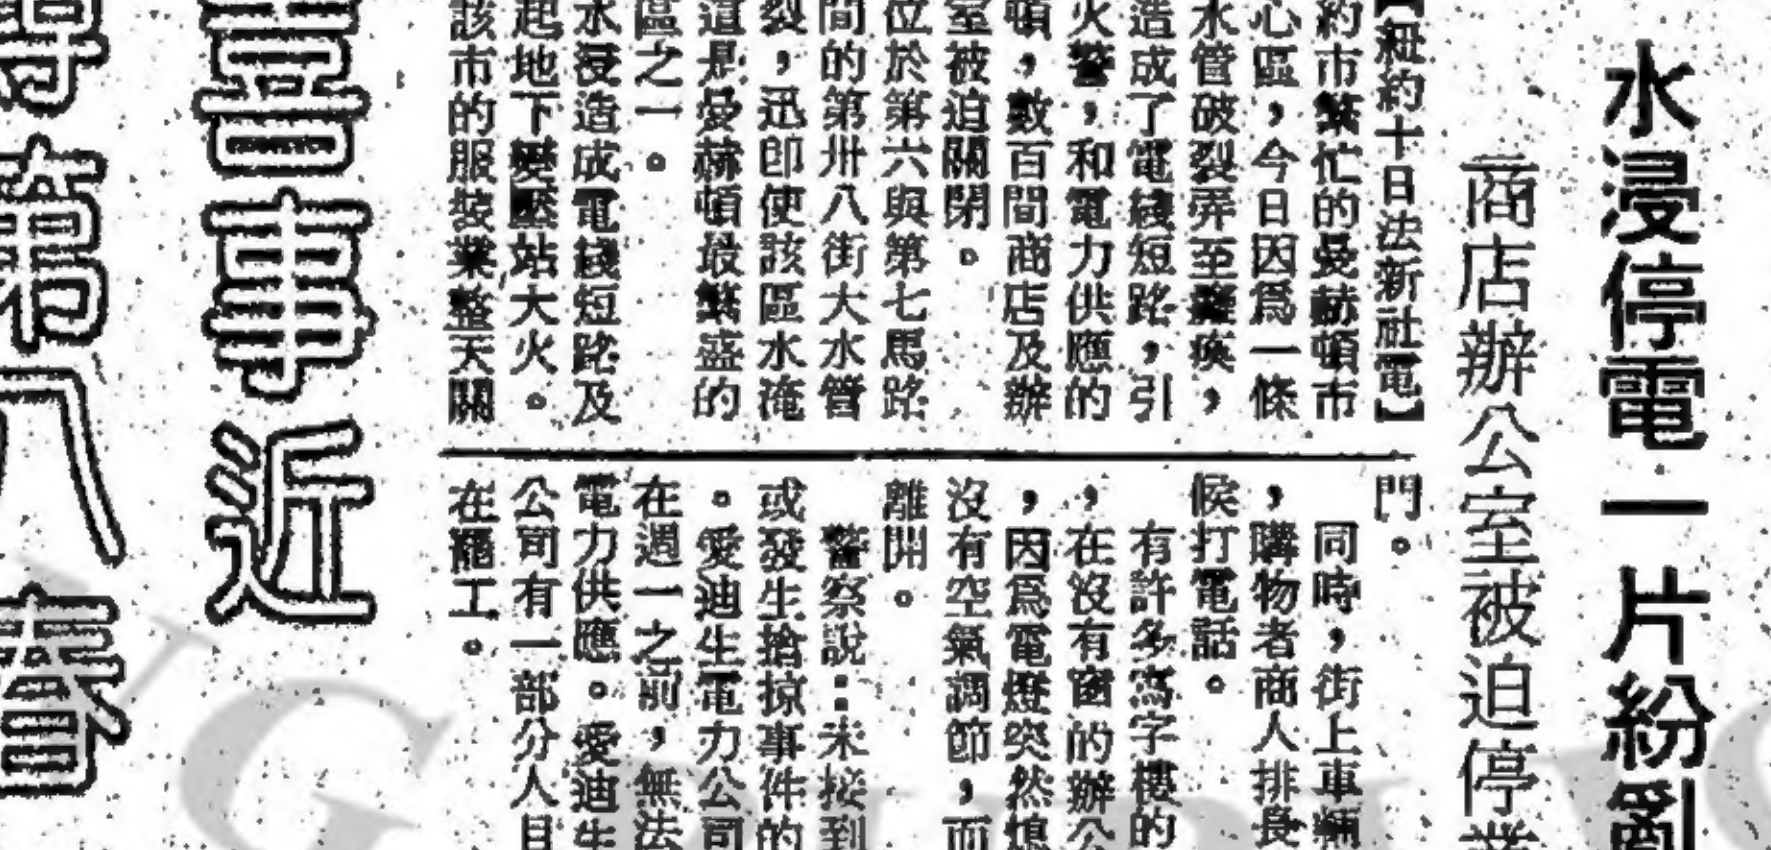 水浸停電一片紛亂
商店辦公室被迫停業
【紐約十日法新社電】
約市繁忙的曼赫頓市
心區，今日因爲一條
水管破裂弄至癱瘓，
造成了電綫短路，引
火警，和電力供應的
頓，數百間商店及辦
室被迫關閉。
位於第六與第七馬路
間的第卅八街大水管
裂，迅即使該區水淹
這是愛赫頓最繁盛的
區之一。
水浸造成電綫短路及
起地下變壓站大火。
該市的服裝業整天關
門。
同時，街上車輛
，購物者商人排長
候打電話。
有許多寫字樓的
，在沒有窗的辦公
，因爲電燈突然熄
沒有空氣調節，而
離開。
警察說：未接到
或發生搶掠事件的
。愛迪生電力公司
在週一之前，無法
電力供應。愛迪生
公司有一部分人目
在罷工。
喜事近
第八春